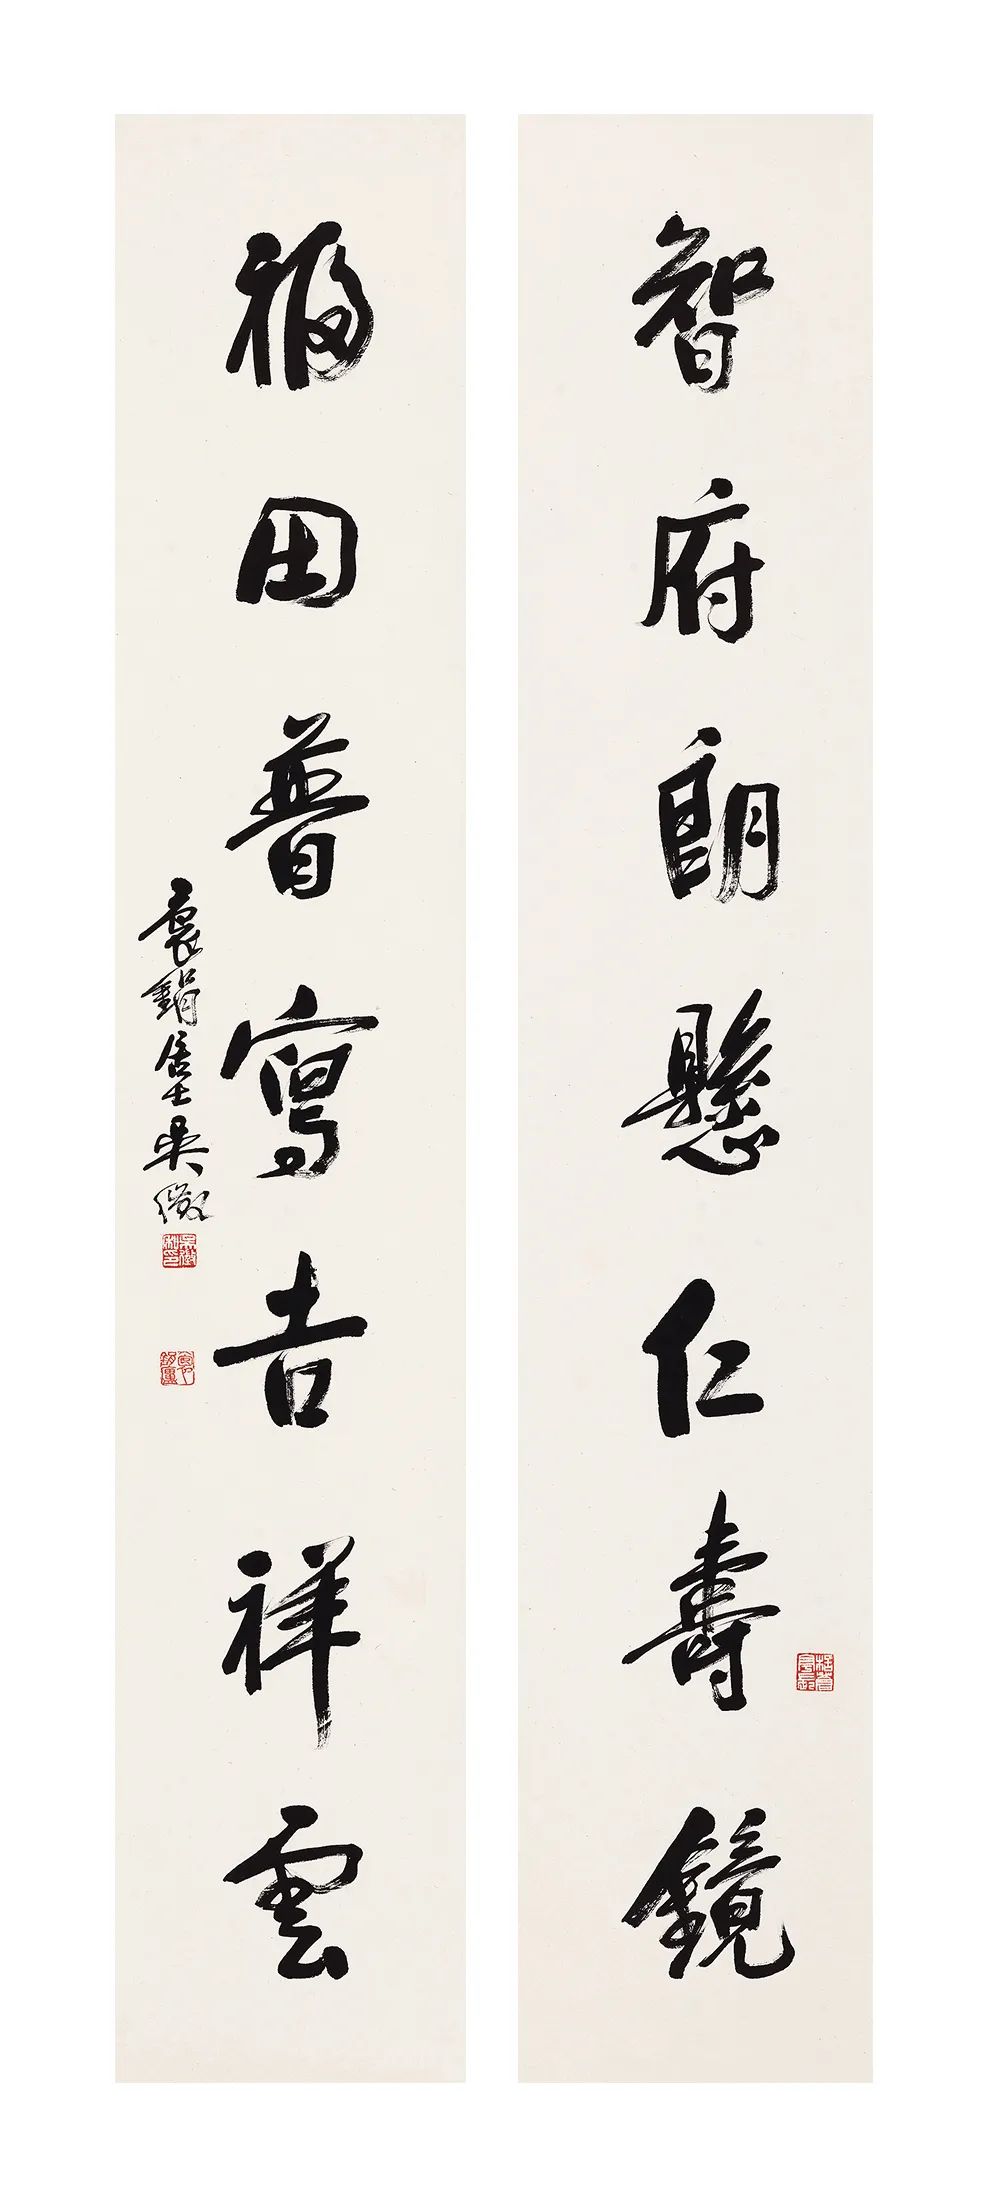 智府朗懸仁壽鏡
福田普寫吉祥雲
吳徵